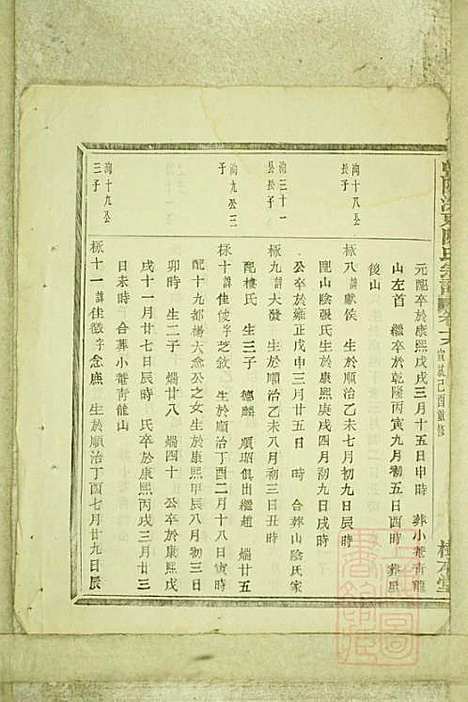 元配卒於康熙戊戌三月十五日申時 葬小巷青龍
山左首 繼卒於乾隆丙寅九月初五日酉時 葬屋
後山
洵十八公
長子
栐八諱獻侯 生於順治乙未七月初九日辰時
山陰張氏生於康熙庚戌四月初九日戌時
公卒於雍正戊申三月廿五日 時 合葬山陰氏家
洵三十一
公長子
栐九諱大發 生於順治乙未八月初三日丑時
配樓氏 生三子 德麟 順瑞俱出繼趙 熵廿五
洵九公三
子
栐十諱佳俊字芝敘 生於順治丁酉二月十八日寅時
配十九都楊大念公之女生於康熙甲辰八月初三日
卯時 生二子 熵廿八 熵四十 公卒於康熙戊
戌十一月廿七日辰時 氏卒於康熙丙戌三月三
日未時 合葬小巷青龍山
洵十九公
三子
栐十一諱佳徵字念應 生於順治丁酉七月廿九日辰
宣統己酉重修